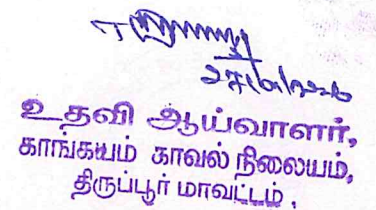 உதவி ஆய்வாளர்,
காங்கயம் காவல் நிலையம்,
திருப்பூர் மாவட்டம்,